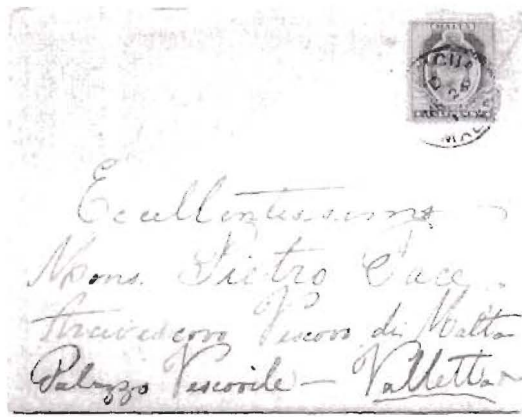 MALTA
Eccellentissimo
Mons. Pietro Pace
Arcivescovo Vescovo di Malta
Palazzo Vescovile — Valletta